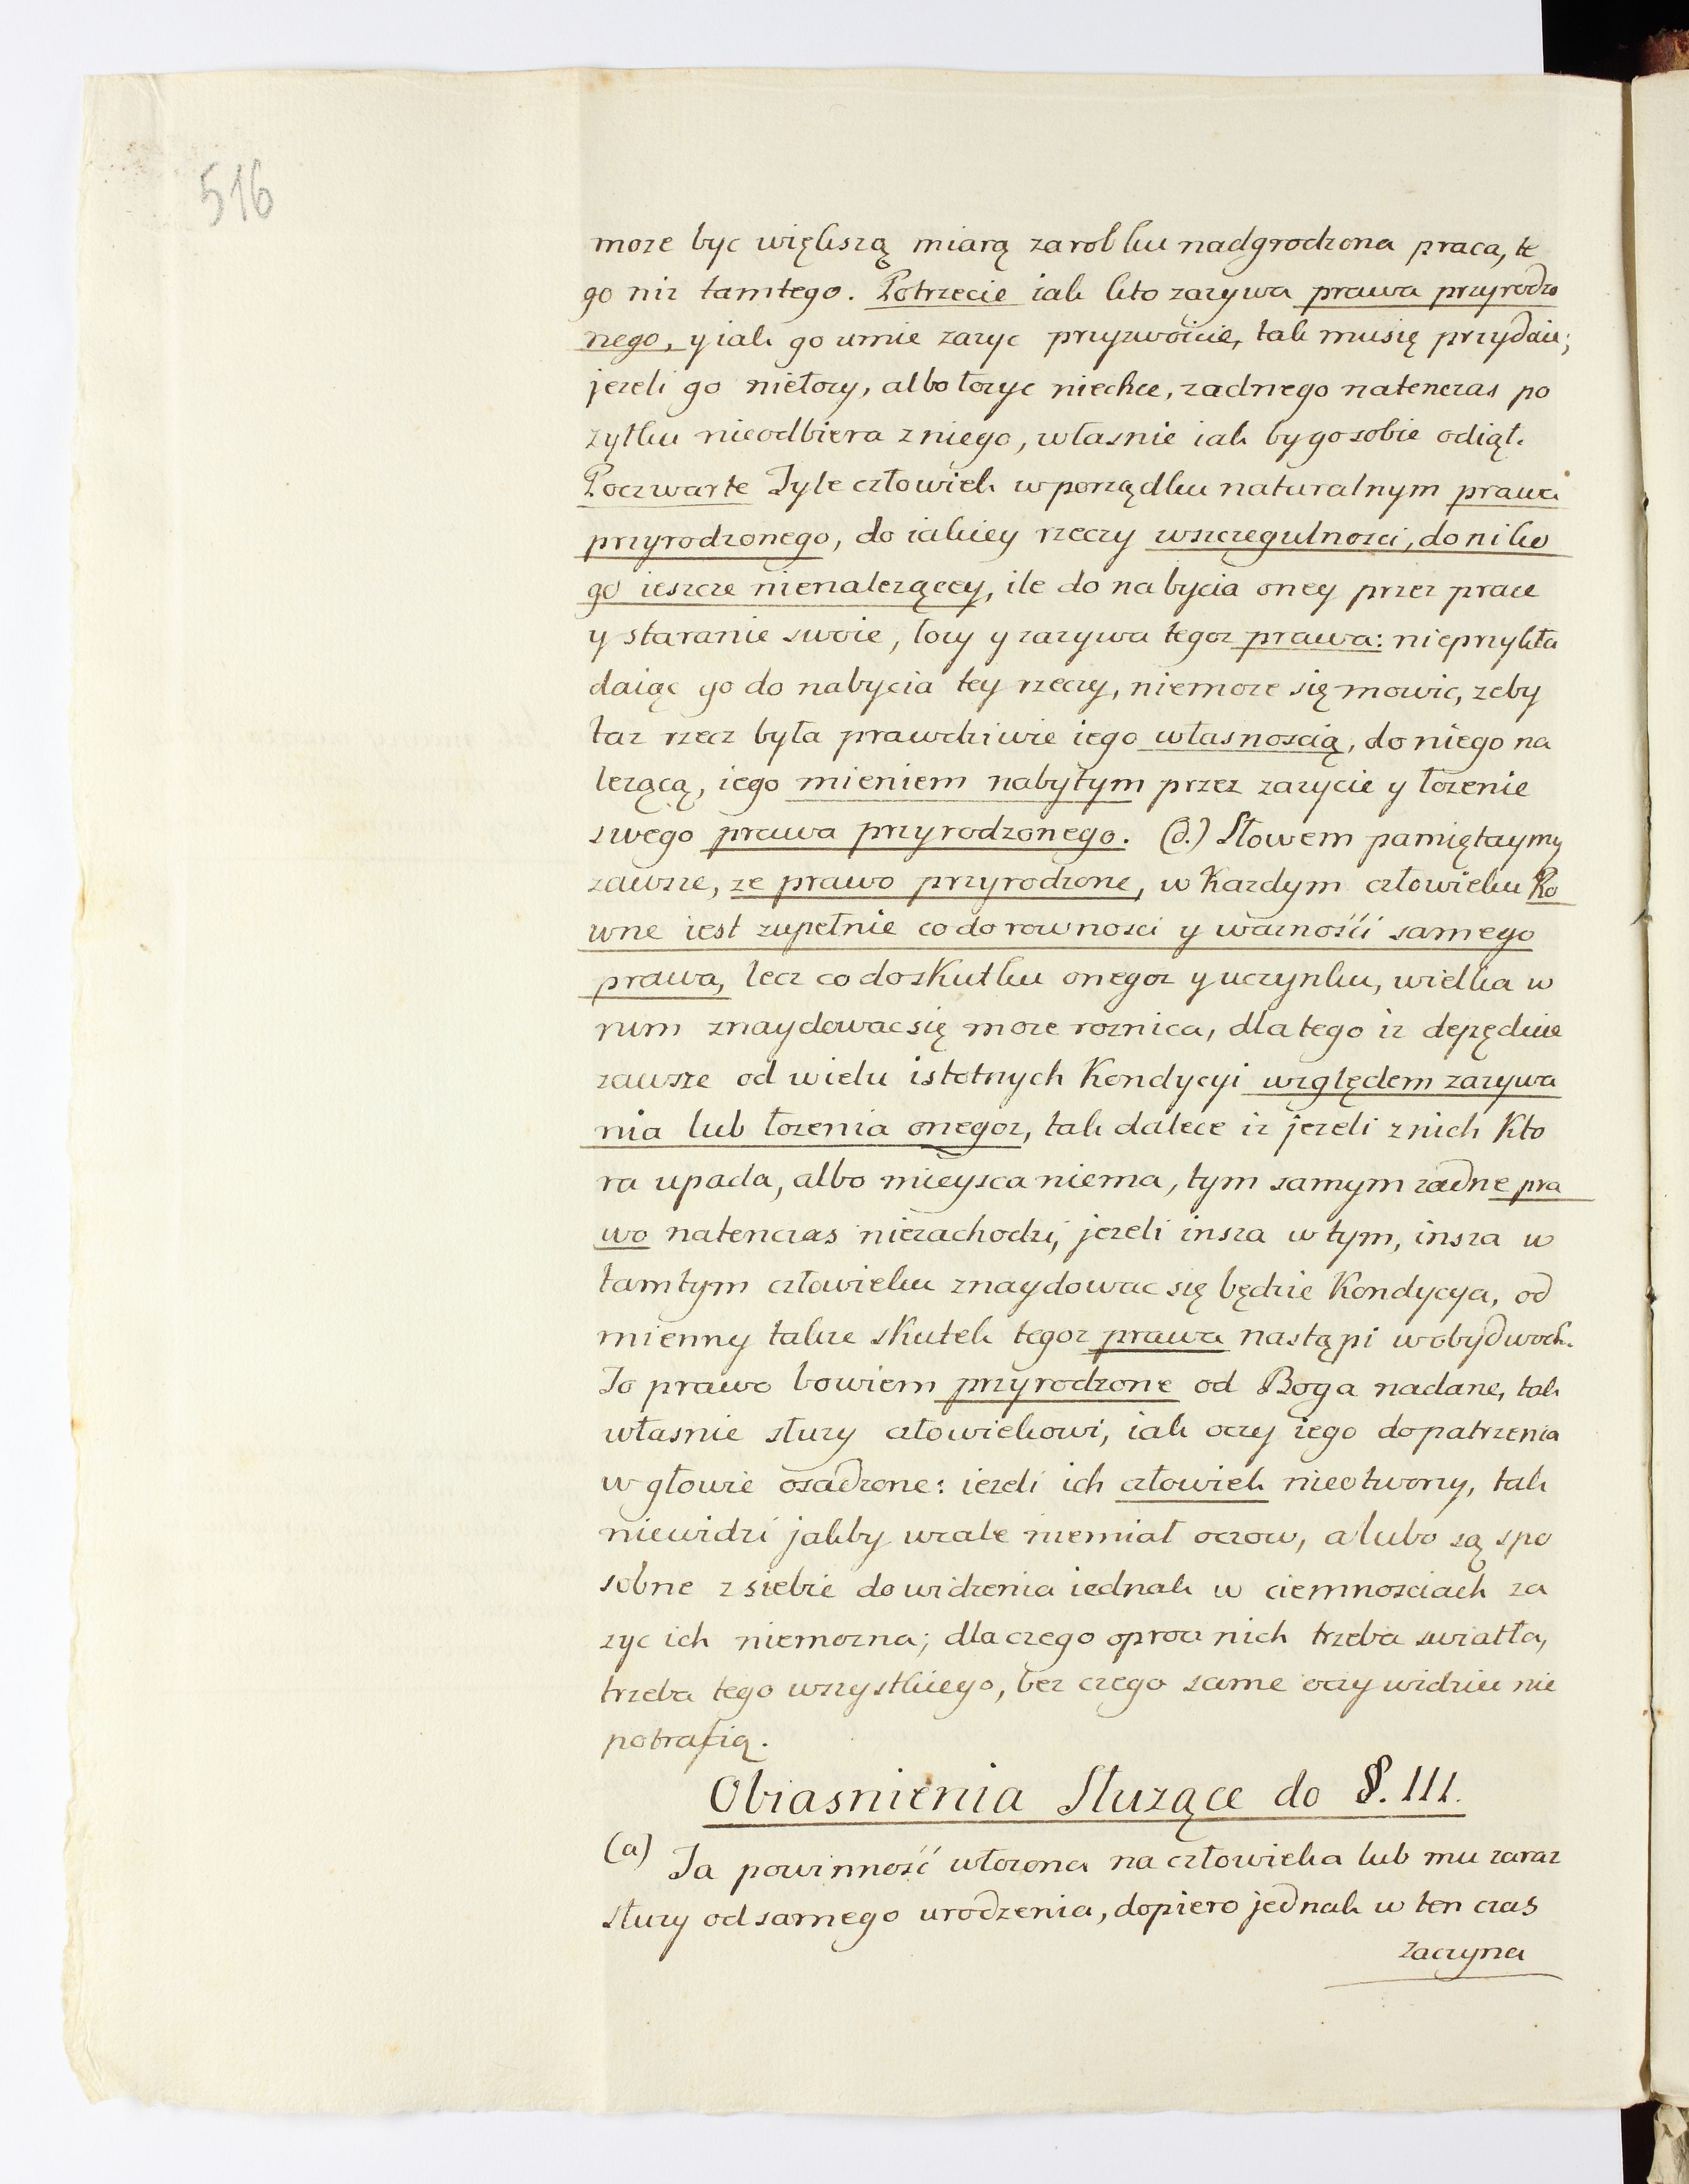 516
moze byc większą miarą zarobku nadgrodzona praca, te
go niz tamtego. Potrzecie iak kto zazywa prawa przyrodzo
nego, y iak go umie zazyc przyzwoicie, tak mu się przydaie;
jezeli go niełozy, albo łozyc niechce, zadnego natenczas po
zytku nieodbiera z niego, własnie iak by go sobie odiął.
Poczwarte Tyle człowiek w porządku naturalnym prawa
przyrodzonego, do iakiey rzeczy wszczegulnosci, do niko
go ieszcze nienalezącey, ile do nabycia oney przez prace
y staranie swoie, łozy y zazywa tegoz prawa: nieprzykła
daiąc go do nabycia tey rzeczy, niemoze się mowic, zeby
taz rzecz była prawdziwie iego własnoscią, do niego na
lezącą, iego mieniem nabytym przez zazycie y łozenie
swego prawa przyrodzonego. (d.) Słowem pamiętaymy
zawsze, ze prawo przyrodzone, w Kazdym człowieku Ro
wne iest zupełnie co do rownosci y waznośći samego
prawa, lecz co do skutku onegoz y uczynku, wielka w
nim znaydowac się moze roznica, dla tego iz depędiue
zawsze od wielu istotnych Kondycyi względem zazywa
nia lub łozenia onegoz, tak dalece iz jezeli z nich Kto
ra upada, albo mieysca niema, tym samym zadne pra
wo natenczas niezachodzi, jezeli insza w tym, insza w
tamtym człowieku znaydowac się będzie Kondycya, od
mienny takze skutek tegoz prawa nastąpi w obydwoch.
To prawo bowiem przyrodzone od Boga nadane, tak
własnie słuzy człowiekowi, iak oczy iego do patrzenia
w głowie osadzone: iezeli ich człowiek nieotworzy, tak
niewidzi jakby wcale niemiał oczow, a lubo są spo
sobne z siebie do widzenia iednak w ciemnosciach za
zyc ich niemozna; dla czego oprocz nich trzeba swiatła,
trzeba tego wszystkiego, bez czego same oczy widziec nie
potrafią.
Obiasnienia Słuzące do §. III.
(a) Ta powinność włozona na człowieka lub mu zaraz
słuzy od samego urodzenia, dopiero jednak w ten czas
zaczyna